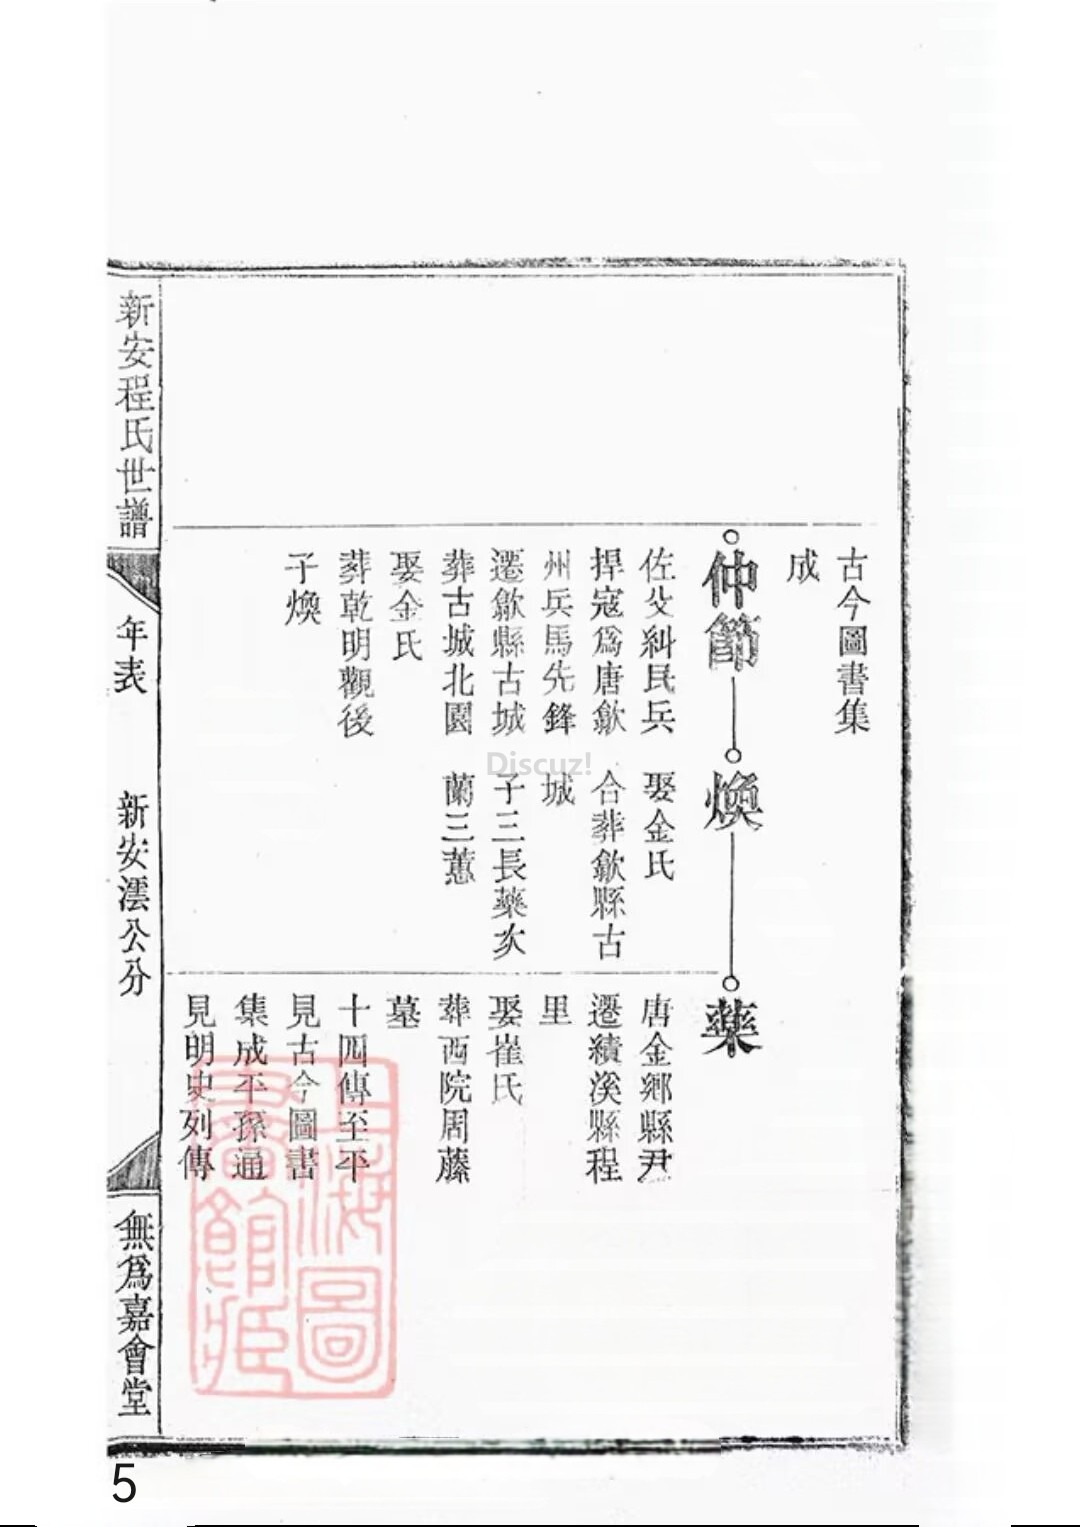 古今圖書集
成
仲節
佐父糾民兵
捍寇爲唐歙
州兵馬先鋒
遷歙縣古城
葬古城北園
娶金氏
葬乾明觀後
子煥
煥
娶金氏
合葬歙縣古
城
子三長藥次
蘭三蕙
藥
唐金鄉縣尹
遷績溪縣程
里
娶崔氏
葬西院周藤
墓
十四傳至平
見古今圖書
集成平孫通
見明史列傳
新安程氏世譜
年表
新安澐公分
無爲嘉會堂
上海圖
書館藏
Discuz!
5